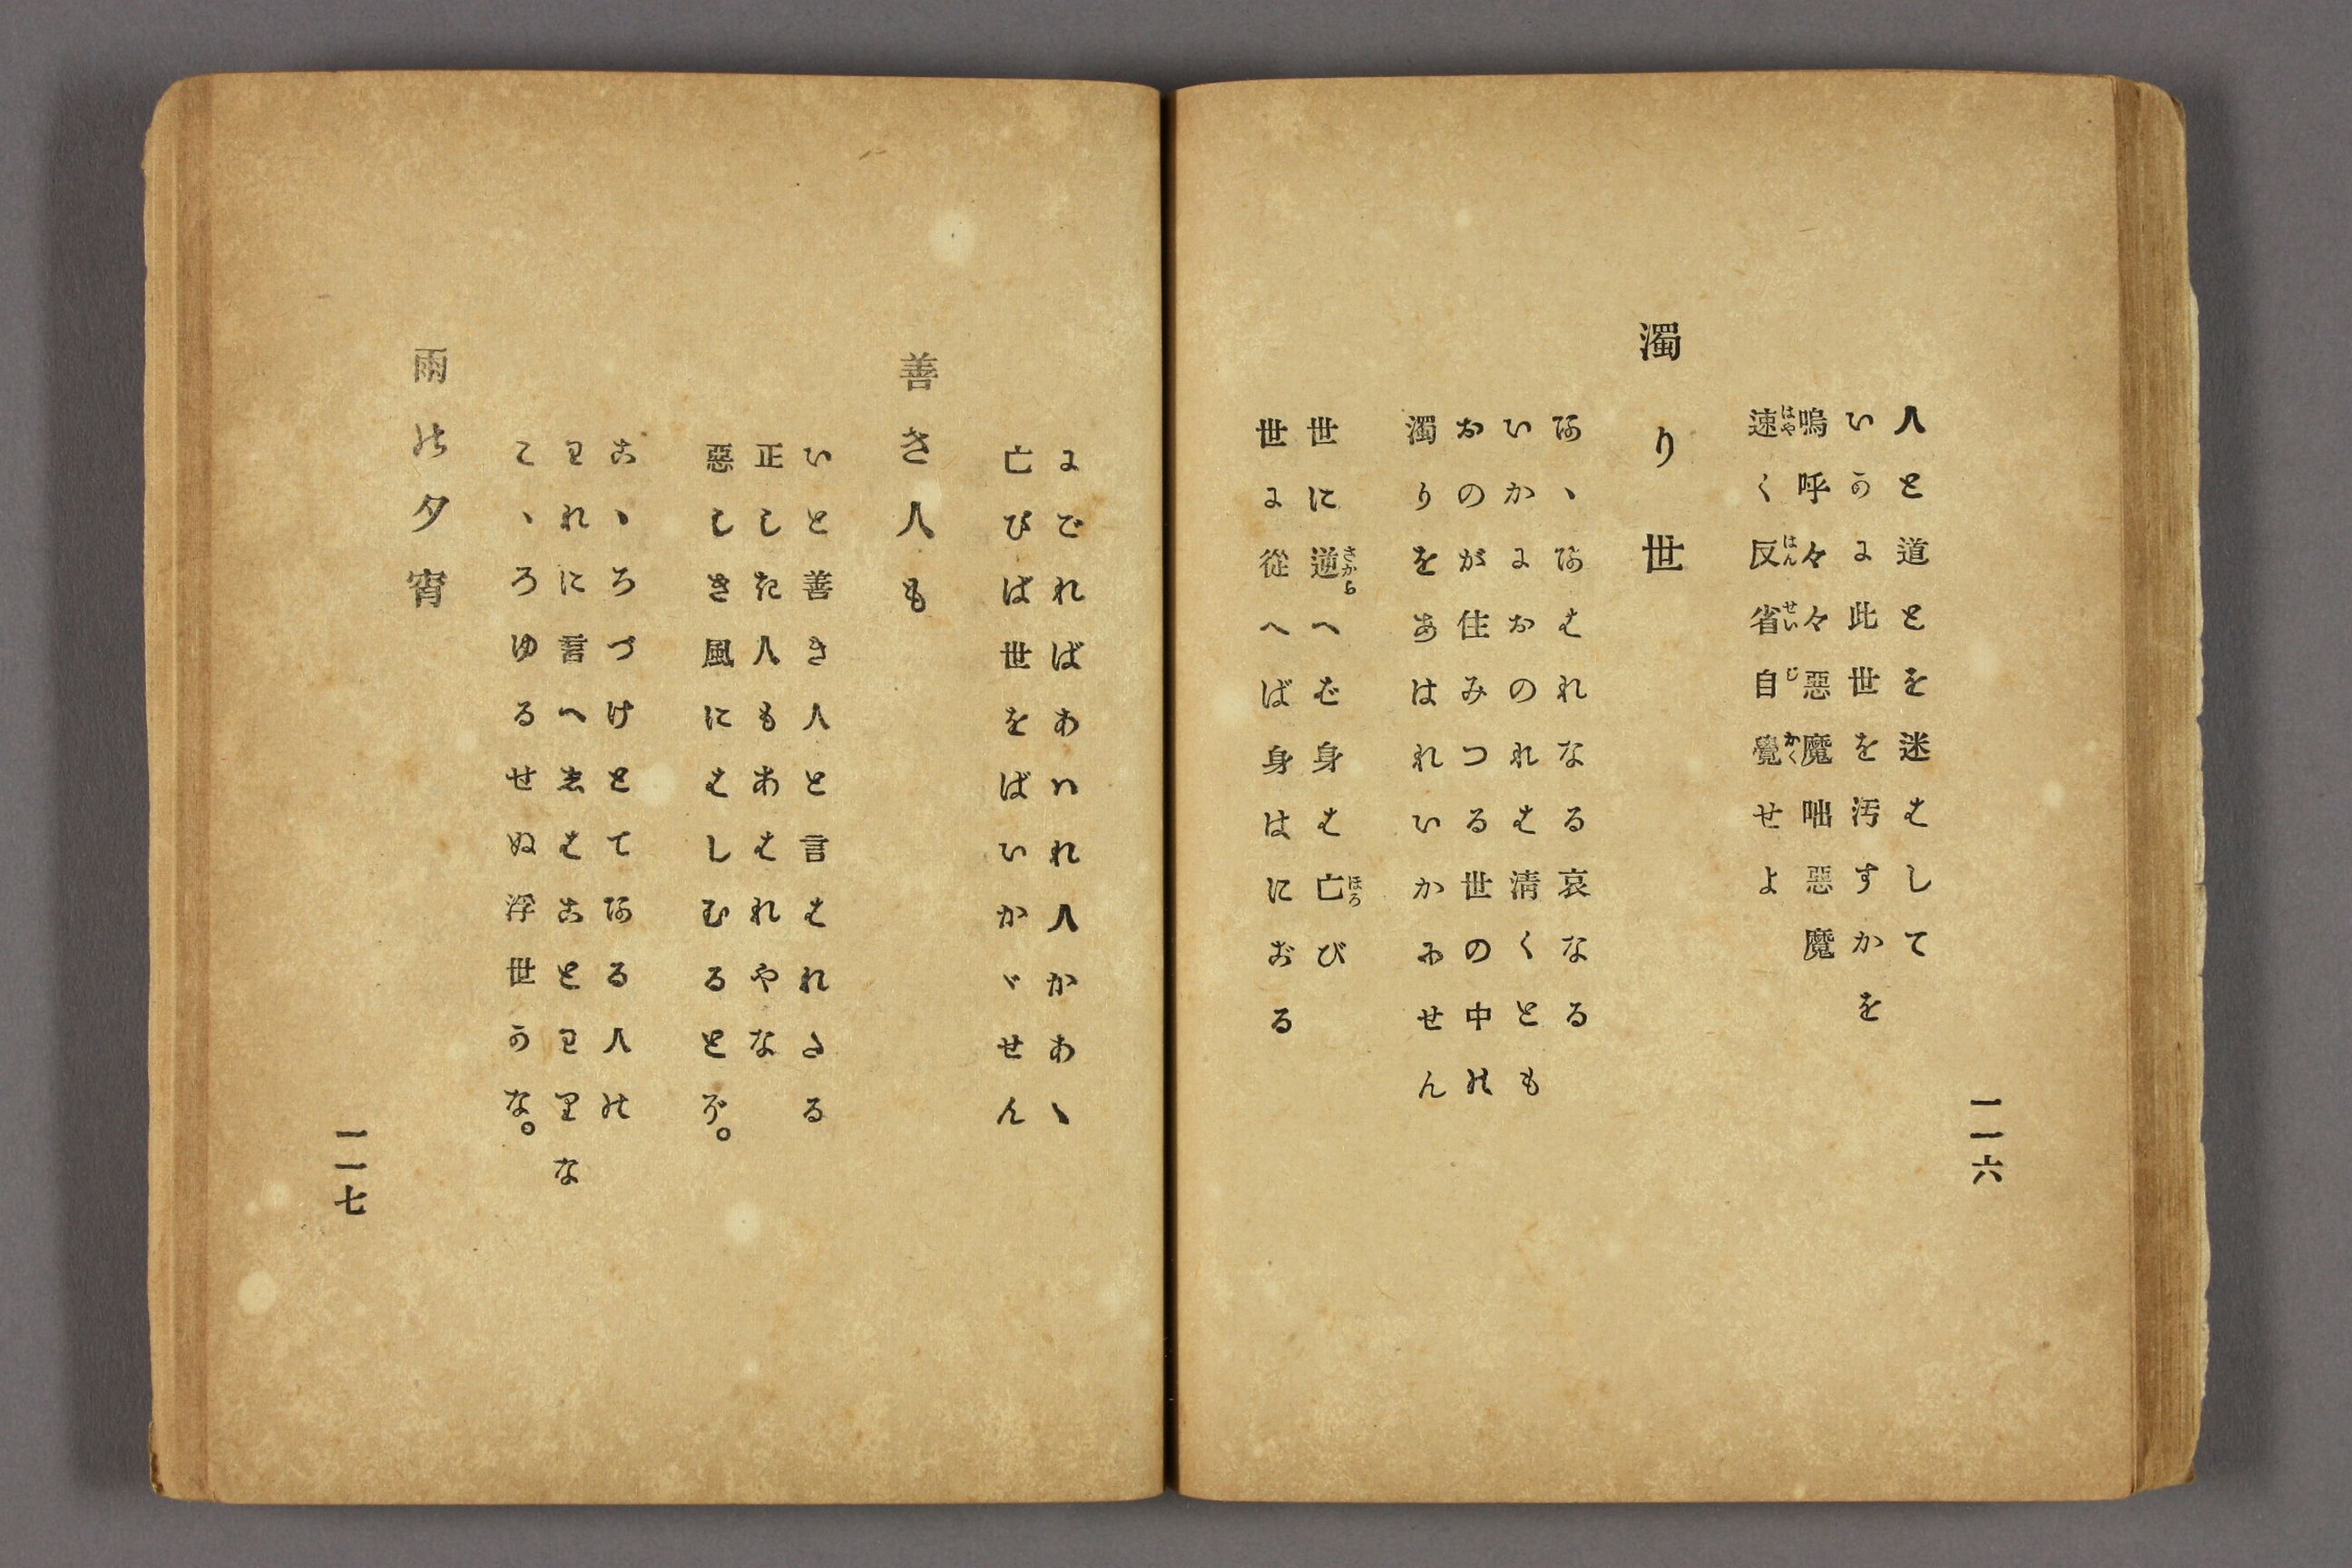 一一六
人と道とを迷はして
いかに此世を汚すかを
嗚呼々々惡魔咄惡魔
速く反省自覺せよ
はや はん せい じ かく
濁り世
あゝあはれなる哀なる
いかにおのれは清くとも
おのが住みつる世の中の
濁りをあはれいかにせん
世に逆へば身は亡び
さから ほろ
世に從へば身はにごる
にごればあハれ人かあゝ
亡びば世をばいかゞせん
善き人も
いと善き人と言はれたる
正しき人もあはれやな
惡しき風にはしむるとぞ。
こゝろづけとてある人の
われに言へしはことわりな
こゝろゆるせぬ浮世かな。
雨の夕宵
一一七